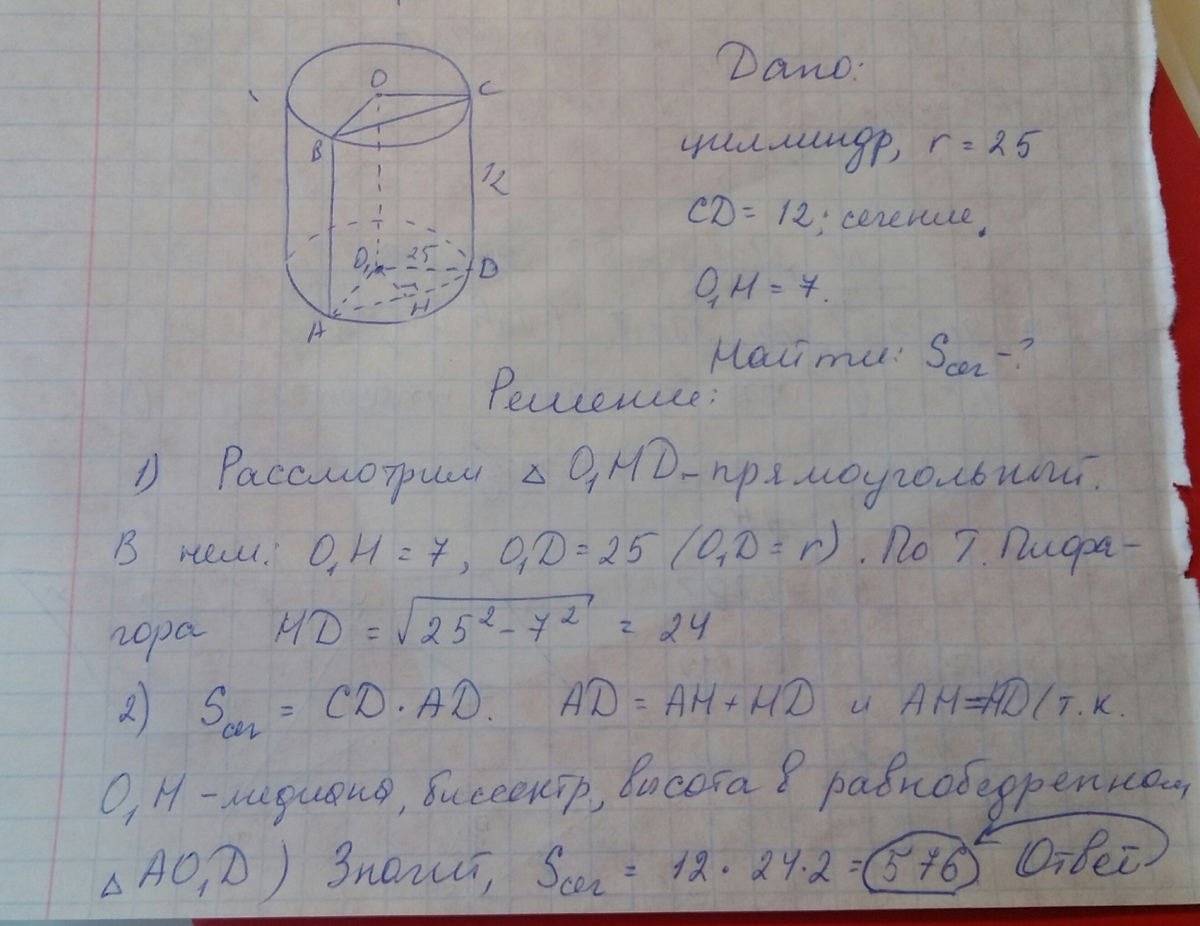 O
C
B
12
O₁ 25
D
H
A
Дано:
цилиндр, r = 25
CD = 12; сечение.
O₁H = 7.
Найти: Sсеч -?
Решение:
1) Рассмотрим △ O₁HD - прямоугольный.
В нем: O₁H = 7, O₁D = 25 (O₁D = r). По Т. Пифа-
гора HD = √25² - 7² = 24
2) Sсеч = CD · AD. AD = AH + HD и AH = HD (т.к.
O₁H - медиана, биссектр, высота в равнобедренном
△ AO₁D) Значит, Sсеч = 12 · 24 · 2 = 576 Ответ